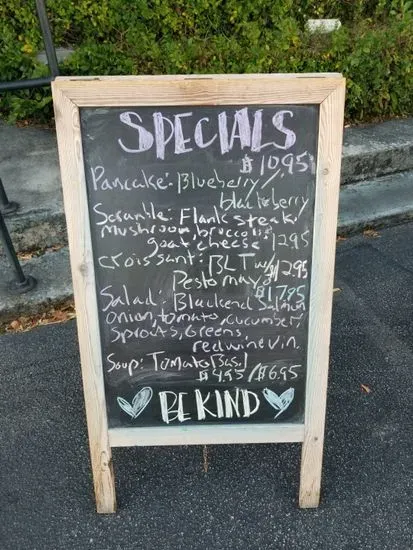 SPECIALS
$10.95
Pancake: Blueberry/
blackberry
Scramble: Flank steak,
mushroom, broccoli,
goat cheese 12.95
croissant: BLT w/ $12.95
Pesto mayo
Salad: Blackend Salmon $17.95
onion, tomato, cucumber,
Sprouts, Greens
red wine vin.
Soup: Tomato Basil
$4.95/$6.95
BE KIND